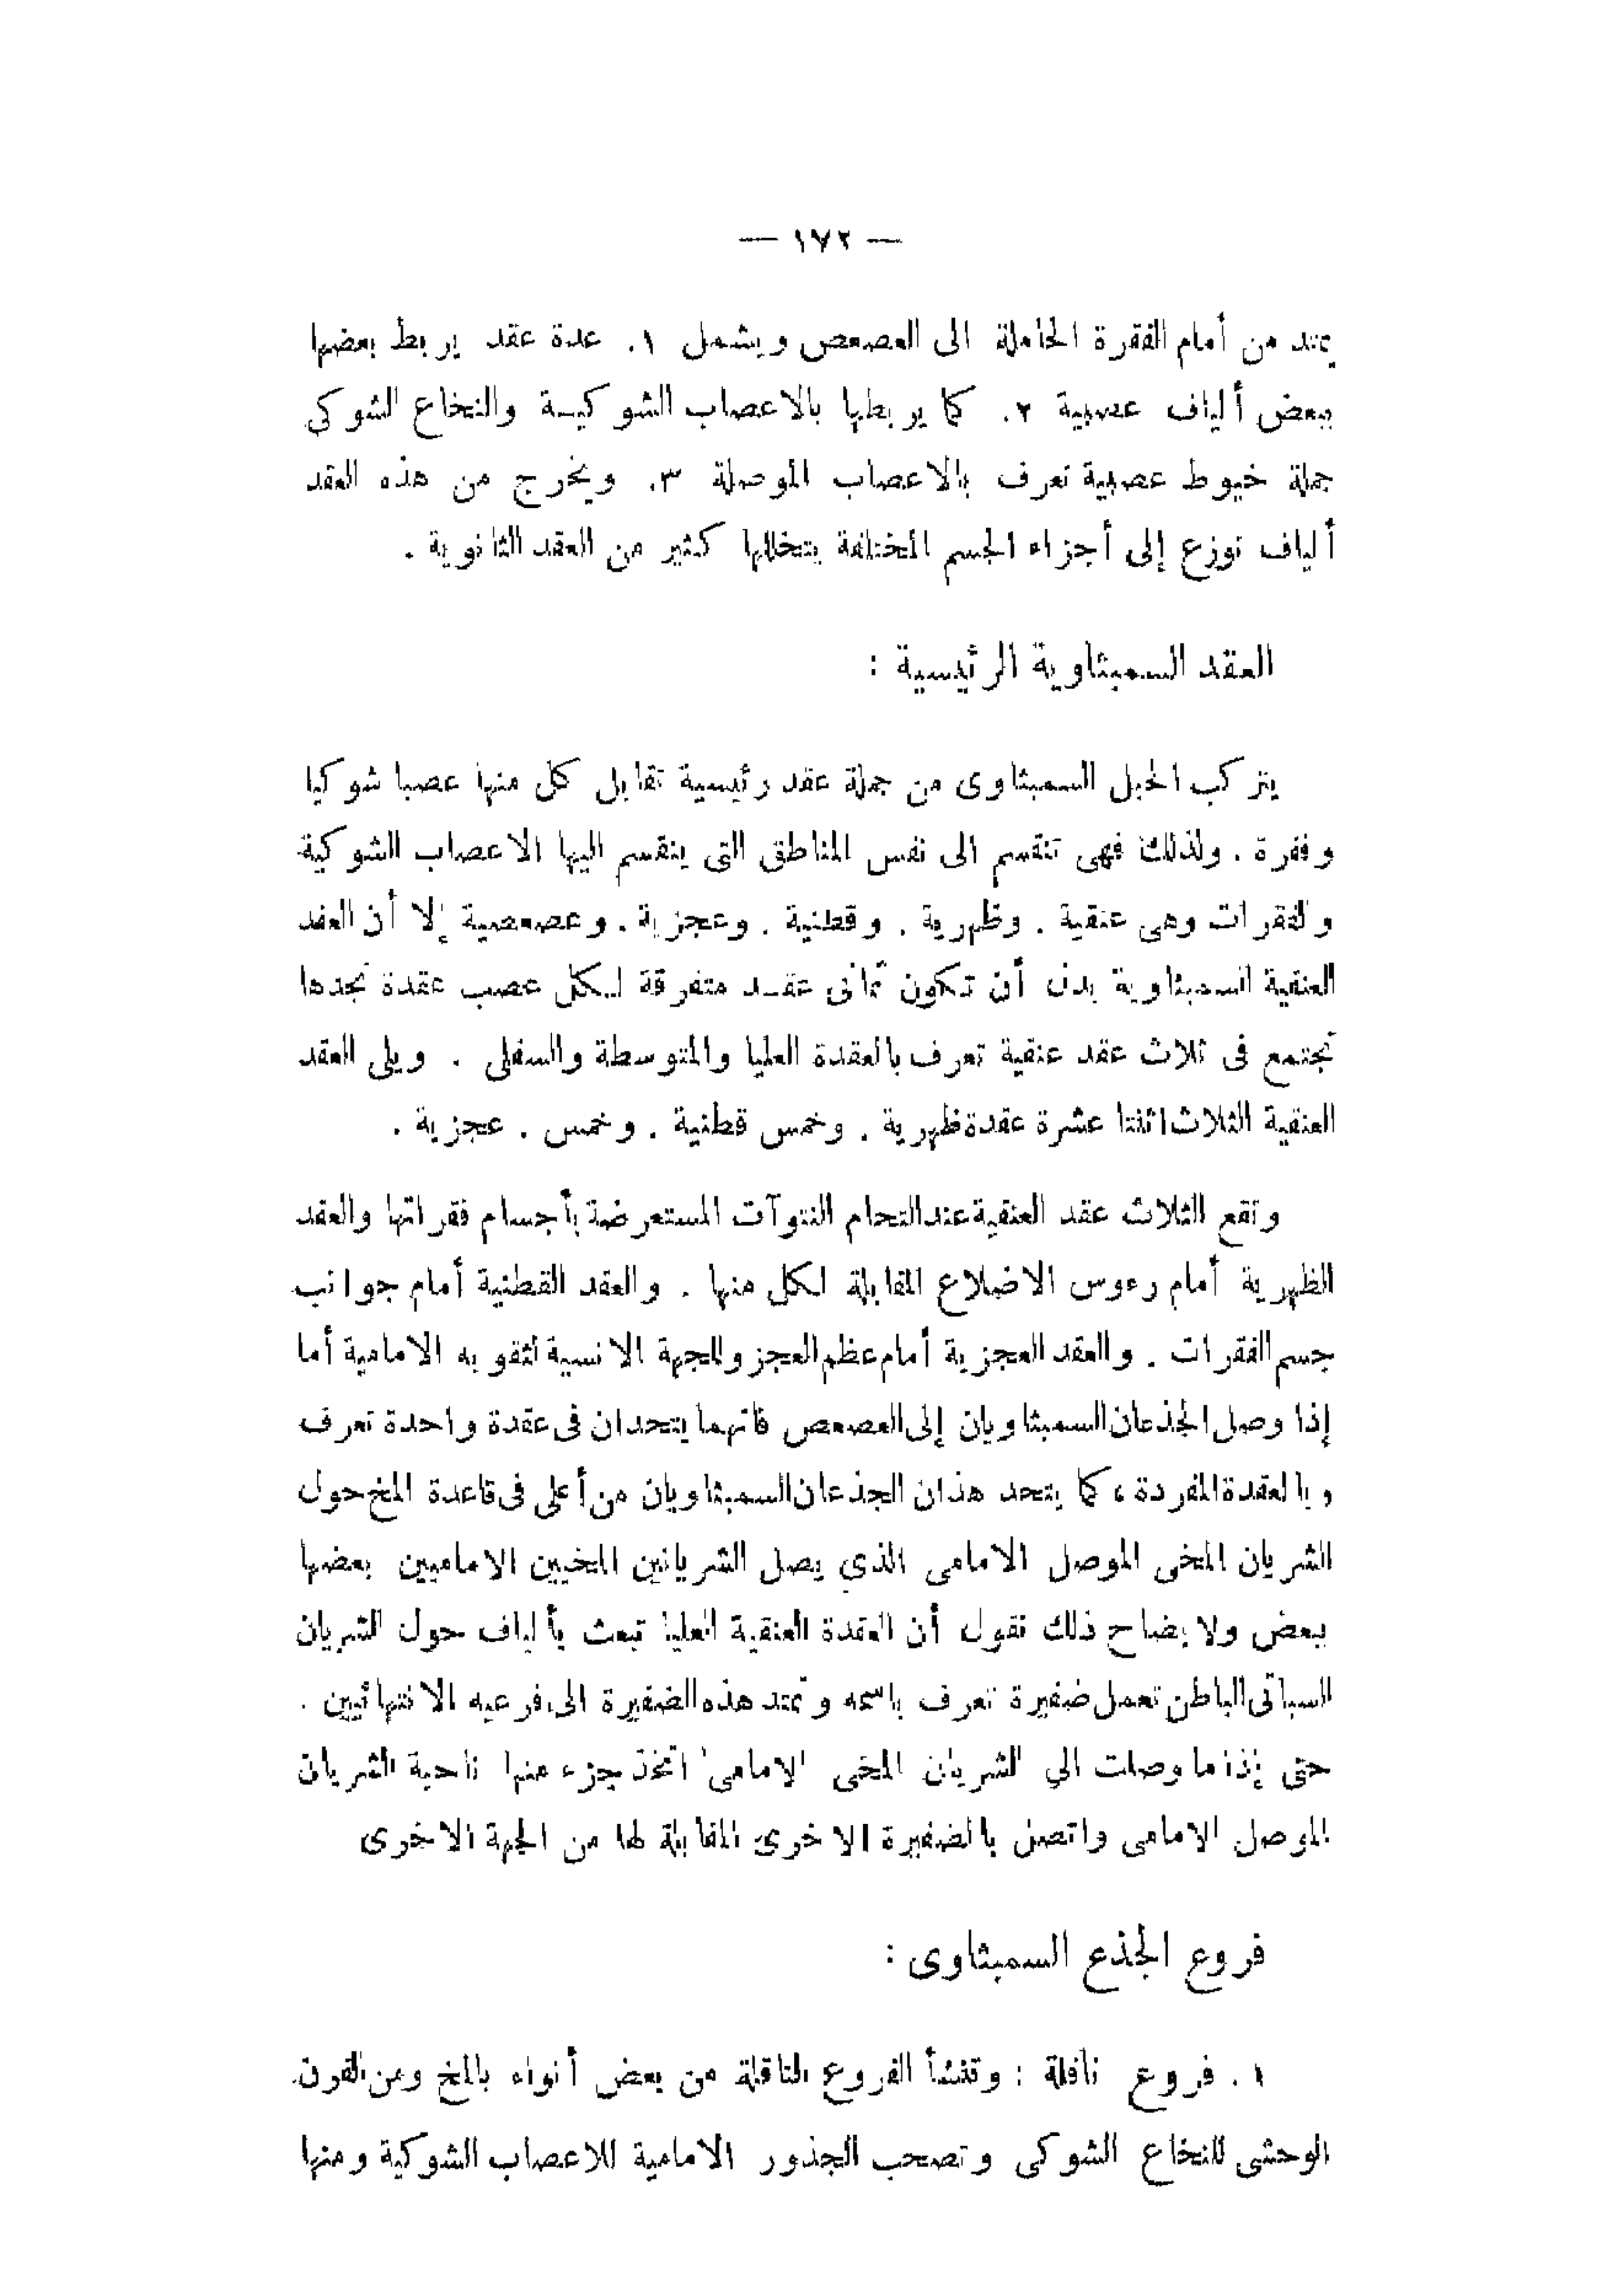 — ١٧٢ —
يمتد من أمام الفقرة الحاملة الى العصعص ويشمل ١. عدة عقد يربط بعضها
ببعض ألياف عصبية ٢. كما يربطها بالاعصاب الشوكيـة والنخاع الشوكى
جملة خيوط عصبية تعرف بالاعصاب الموصلة ٣. ويخرج من هذه العقد
ألياف توزع إلى أجزاء الجسم المختلفة يتخللها كثير من العقد الثانوية .
العقد السمبثاوية الرئيسية :
يتركب الحبل السمبثاوى من جملة عقد رئيسية تقابل كل منها عصبا شوكيا
وفقرة . ولذلك فهى تنقسم الى نفس المناطق التى ينقسم اليها الاعصاب الشوكية
والفقرات وهى عنقية . وظهرية . وقطنية . وعجزية . وعصعصية إلا أن العقد
العنقية السمبثاوية بدل أن تكون ثمانى عقـد متفرقة لـكل عصب عقدة نجدها
تجتمع فى ثلاث عقد عنقية تعرف بالعقدة العليا والمتوسطة والسفلى . ويلى العقد
العنقية الثلاث اثنتا عشرة عقدة ظهرية . وخمس قطنية . وخمس . عجزية .
وتقع الثلاث عقد العنقية عند التحام النتوآت المستعرضة بأجسام فقراتها والعقد
الظهرية أمام رءوس الاضلاع المقابلة لكل منها . والعقد القطنية أمام جوانب
جسم الفقرات . والعقد العجزية أمام عظم العجز وللجهة الانسية لثقوبه الامامية أما
إذا وصل الجذعان السمبثاويان إلى العصعص فانهما يتحدان فى عقدة واحدة تعرف
وبالعقدة المفردة ، كما يتحد هذان الجذعان السمبثاويان من أعلى فى قاعدة المخ حول
الشريان المخى الموصل الامامى الذي يصل الشريانين المخيين الاماميين بعضها
ببعض ولايضاح ذلك نقول أن العقدة العنقية العليا تبعث بألياف حول الشريان
السباتى الباطن تعمل ضفيرة تعرف باسمه وتمتد هذه الضفيرة الى فرعيه الانتهائيين .
حتى إذا ما وصلت الي الشريان المخى الامامى اتخذ جزء منها ناحية الشريان
الموصل الامامى واتصل بالضفيرة الاخرى المقابلة لها من الجهة الاخرى
فروع الجذع السمبثاوى :
١ . فروع ناقلة : وتنشأ الفروع الناقلة من بعض أنواء بالمخ ومن القرن
الوحشى للنخاع الشوكى وتصحب الجذور الامامية للاعصاب الشوكية ومنها